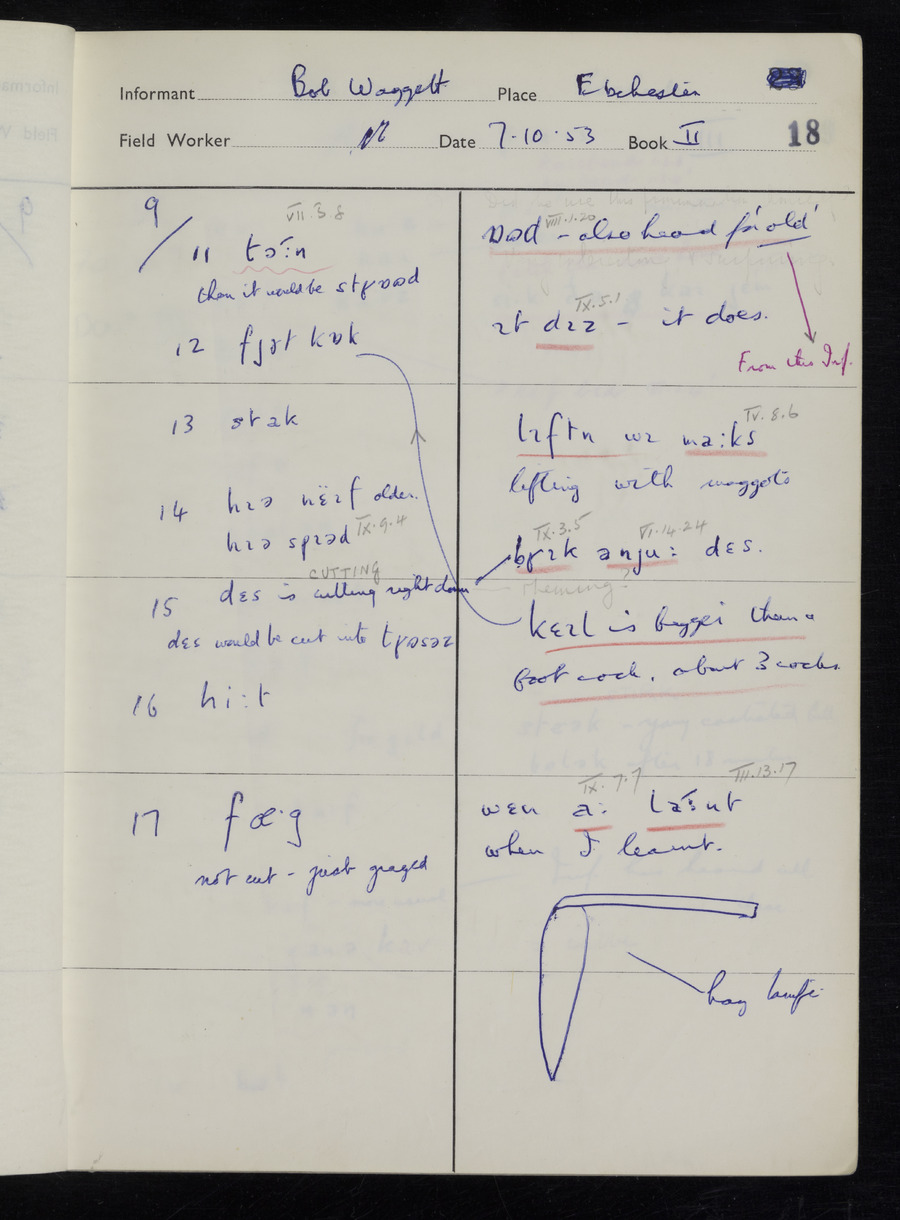 Informant Bob Waggett Place Ebchester
Field Worker Date 7·10·53 Book II 18
9/
VII.3.8
11 tɔ:n
then it would be
12 fɟət kɒk
13 stak
14 hɪə nëɪf older.
hɪə sprəd IX.9.4
CUTTING
15 dɛs is cutting right down
dɛs would be cut into
16 hi:t
17 fæ·g
not cut - just grazed
VIII.1.20
- also heard for 'old'
IX.5.1
ɪt dɪz - it does.
From this Inf.
IV.8.6
lɪftn wɪ ma:ks
lifting with maggots
IX.3.5 VI.14.24
bʁɪk anju: dɛs.
kɛɪl is bigger than a
foot cock, about 3 cocks.
IX.7.7 III.13.17
wɛn a:
when I learnt.
hay knife